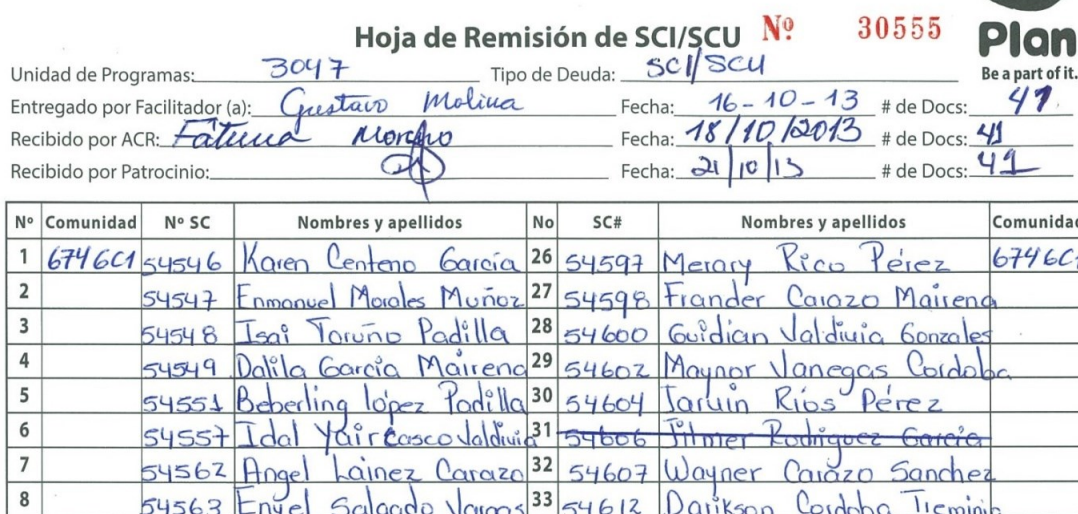 Hoja de Remisión de SCI/SCU Nº 30555
Plan
Be a part of it.
Unidad de Programas: 3047 Tipo de Deuda: SCI/SCU
Entregado por Facilitador (a): Gustavo Molina Fecha: 16-10-13 # de Docs: 41
Recibido por ACR: Fátima Fecha: 18/10/2013 # de Docs: 41
Recibido por Patrocinio: Fecha: 21/10/13 # de Docs: 41
Nº Comunidad Nº SC Nombres y apellidos No SC# Nombres y apellidos Comunidad
1 6746C1 54546 Karen Centeno García 26 54597 Merary Rico Pérez 6746C
2 54547 Enmanuel Morales Muñoz 27 54598 Frander Carazo Mairena
3 54548 Isai Toruño Padilla 28 54600 Guidian Valdivia Gonzales
4 54549 Dalila García Mairena 29 54602 Maynor Vanegas Cordoba
5 54551 Beberling lópez Padilla 30 54604 Jarvin Ríos Pérez
6 54557 Idal Yair Casco Valdivia 31 54606 Jilmer Rodriguez García
7 54562 Angel Laínez Carazo 32 54607 Wayner Carazo Sanchez
8 54563 Enyel Salgado Vargas 33 54612 Darikson Cordoba Treminio